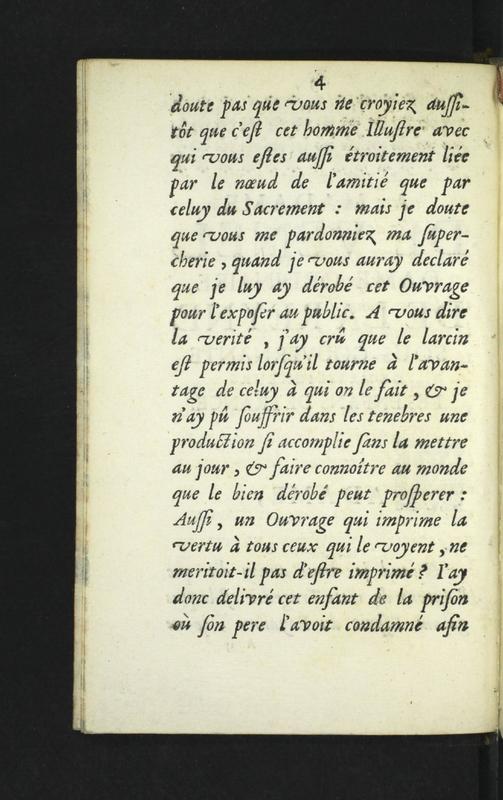 4
doute pas que vous ne croyiez auſſi-
tôt que c'eſt cet homme Illuſtre avec
qui vous eſtes auſſi étroitement liée
par le nœud de l'amitié que par
celuy du Sacrement : mais je doute
que vous me pardonniez ma ſuper-
cherie , quand je vous auray declaré
que je luy ay dérobé cet Ouvrage
pour l'expoſer au public. A vous dire
la verité , j'ay crû que le larcin
eſt permis lorſqu'il tourne à l'avan-
tage de celuy à qui on le fait , & je
n'ay pû ſouffrir dans les tenebres une
production ſi accomplie ſans la mettre
au jour , & faire connoître au monde
que le bien dérobé peut proſperer :
Auſſi , un Ouvrage qui imprime la
vertu à tous ceux qui le voyent , ne
meritoit-il pas d'eſtre imprimé ? I'ay
donc delivré cet enfant de la priſon
où ſon pere l'avoit condamné afin